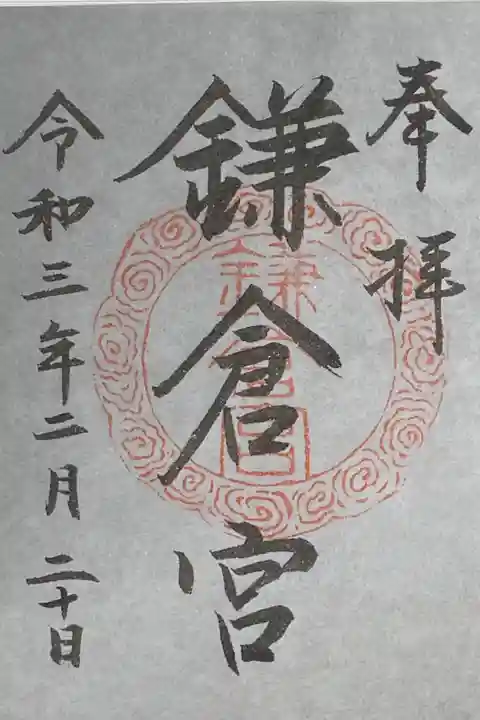 奉拝
鎌倉宮
鎌倉宮
令和三年二月二十日